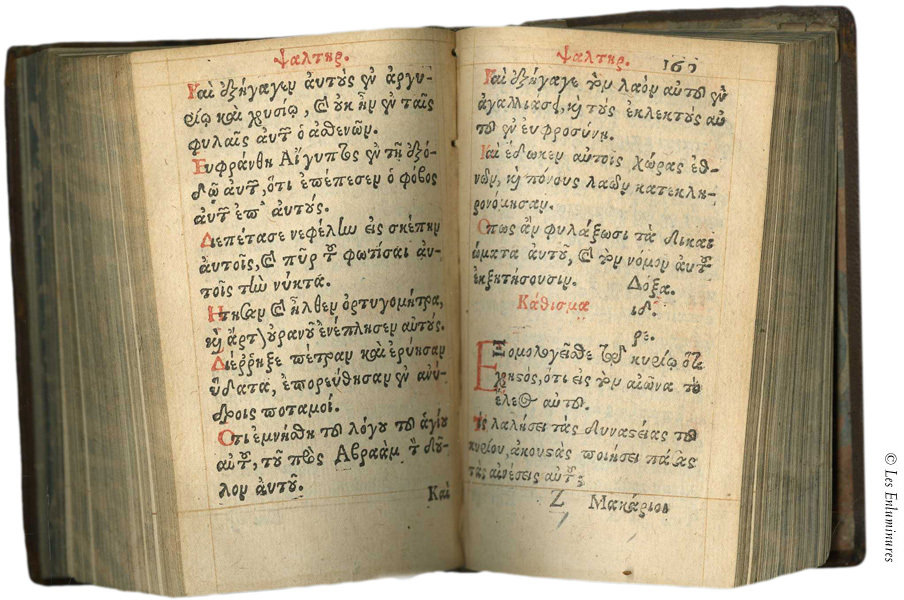 ψαλτηρ.
Καὶ ἐξήγαγεν ἀυτοὺς ἐν ἀργυ-
ρίῳ καὶ χρυσίῳ, καὶ ὀκ ἦν ἐν ταῖς
φυλαῖς ἀυτ ὁ ἀσθενῶν.
Ευφράνθη Αἴγυπτος ἐν τῇ ἐξό-
δῳ ἀυτ, ὅτι ἐπέπεσεν ὁ φόβος
ἀυτ ἐπ' ἀυτούς.
Διεπέτασε νεφέλην εἰς σκέπην
ἀυτοῖς, καὶ πῦρ τοῦ φωτίσαι ἀυ-
τοῖς τὴν νύκτα.
Ητησαν καὶ ἦλθεν ὀρτυγομήτρα,
καὶ ἄρτον ὀρανοῦ ἐνέπλησεν αὐτούς.
Διέῤῥηξε πέτραν καὶ ἐρύησαν
ὕδατα, ἐπορεύθησαν ἐν ἀνύ-
δροις ποταμοί.
Οτι ἐμνήσθη τοῦ λόγου τοῦ ἁγίου
αὑτοῦ, τοῦ πρὸς Αβραὰμ τὸν δοῦ-
λον ἀυτοῦ.
Καὶ
ψαλτηρ.
167
Καὶ ἐξήγαγε τὸν λαὸν αὑτοῦ ἐν
ἀγαλλιάσει, καὶ τοὺς ἐκλεκτοὺς αὑ
τοῦ ἐν ἐυφροσύνῃ.
Καὶ ἔδωκεν αὐτοῖς χώρας ἐθ-
νῶν, καὶ πόνους λαῶν κατεκλη-
ρονόμησαν.
Οπως ἂν φυλάξωσι τὰ δικαι
ώματα ἀυτοῦ, καὶ τὸν νόμον ἀυτοῦ
ἐκζητήσουσιν. Δόξα.
Κάθισμα ιδ΄.
ρε.
Εξομολογεῖσθε τῷ κυρίῳ ὅτι
χρηστός, ὅτι εἰς τὸν αἰῶνα τὸ
ἔλεος αὐτοῦ.
Τίς λαλήσει τὰς δυναστείας τοῦ
κυρίου, ἀκουστὰς ποιήσει πάσας
τὰς αἰνέσεις αὑτοῦ;
Z Μακάριοι
© Les Enluminures